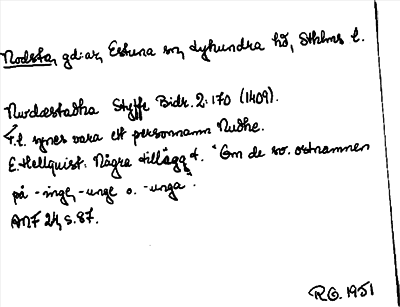 Nodsta, gd:ar, Estuna sn, Lyhundra hd, Sthlms l.
Nwdæstadha Styffe Bidr. 2:170 (1409).
F.l. synes vara ett personnamn Nudhe.
E. Hellquist: Några tillägg t. "Om de sv. ortnamnen
på -inge, -unge o. -unga".
ANF 24, s. 87.
R.O. 1951